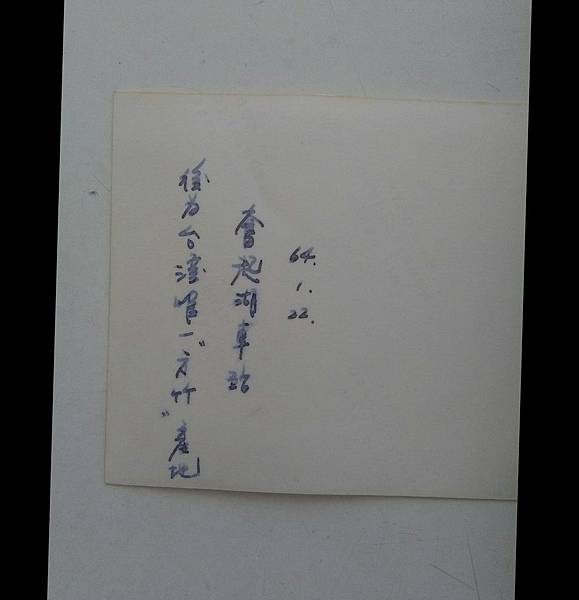 64.1.22.
奮起湖車站
後为台灣唯一〝方竹〞產地